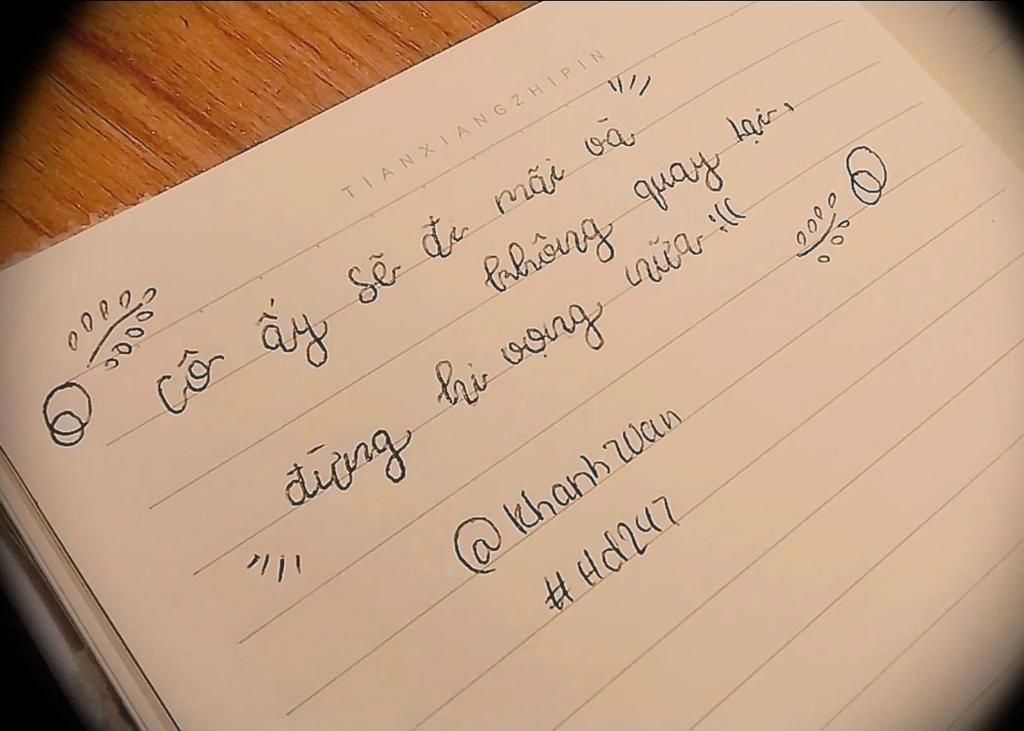 TIANXIANGZHIPIN
Cô ấy sẽ đi mãi và
không quay lại,
đừng hi vọng nữa!!!
@KhanhWan
#Hd247